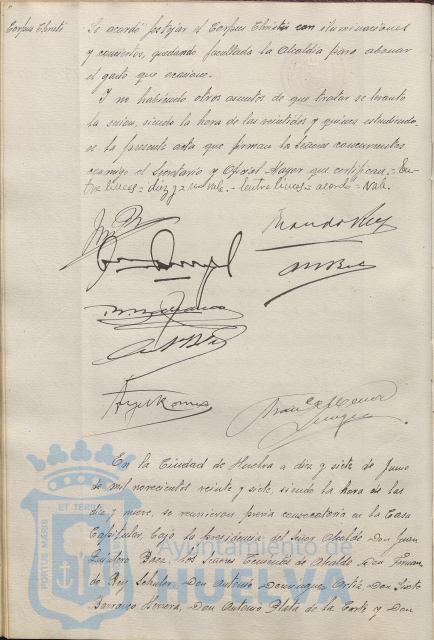 Corpus Christi
Se acordó festejar el Corpus Christi con iluminaciones
y conciertos, quedando facultada la Alcaldía para abonar
el gasto que ocasione.
Y no habiendo otros asuntos de que tratar se levantó
la sesión, siendo la hora de las veintidos y quince, extendiendo-
se la presente acta que firman los Señores concurrentes
conmigo el Secretario y Oficial Mayor que certifican.= En-
tre lineas= diez y = vale.- Entre lineas= acordó= Vale.
Angel Romero
En la Ciudad de Huelva a diez y siete de Junio
de mil novecientos veinte y siete, siendo la hora de las
diez y nueve, se reunieron previa convocatoria en la Casa
Capitular bajo la presidencia del Señor Alcalde Don Juan
Quintero Báez, los Señores Tenientes de Alcalde Don Fernan-
do Rey Schuler, Don Antonio Domínguez Ortiz, Don Sixto
Barranco Herrera, Don Antonio Plata de la Corte y Don
ET TERRE
PORTUS MARIS
Ayuntamiento de
HUELVA